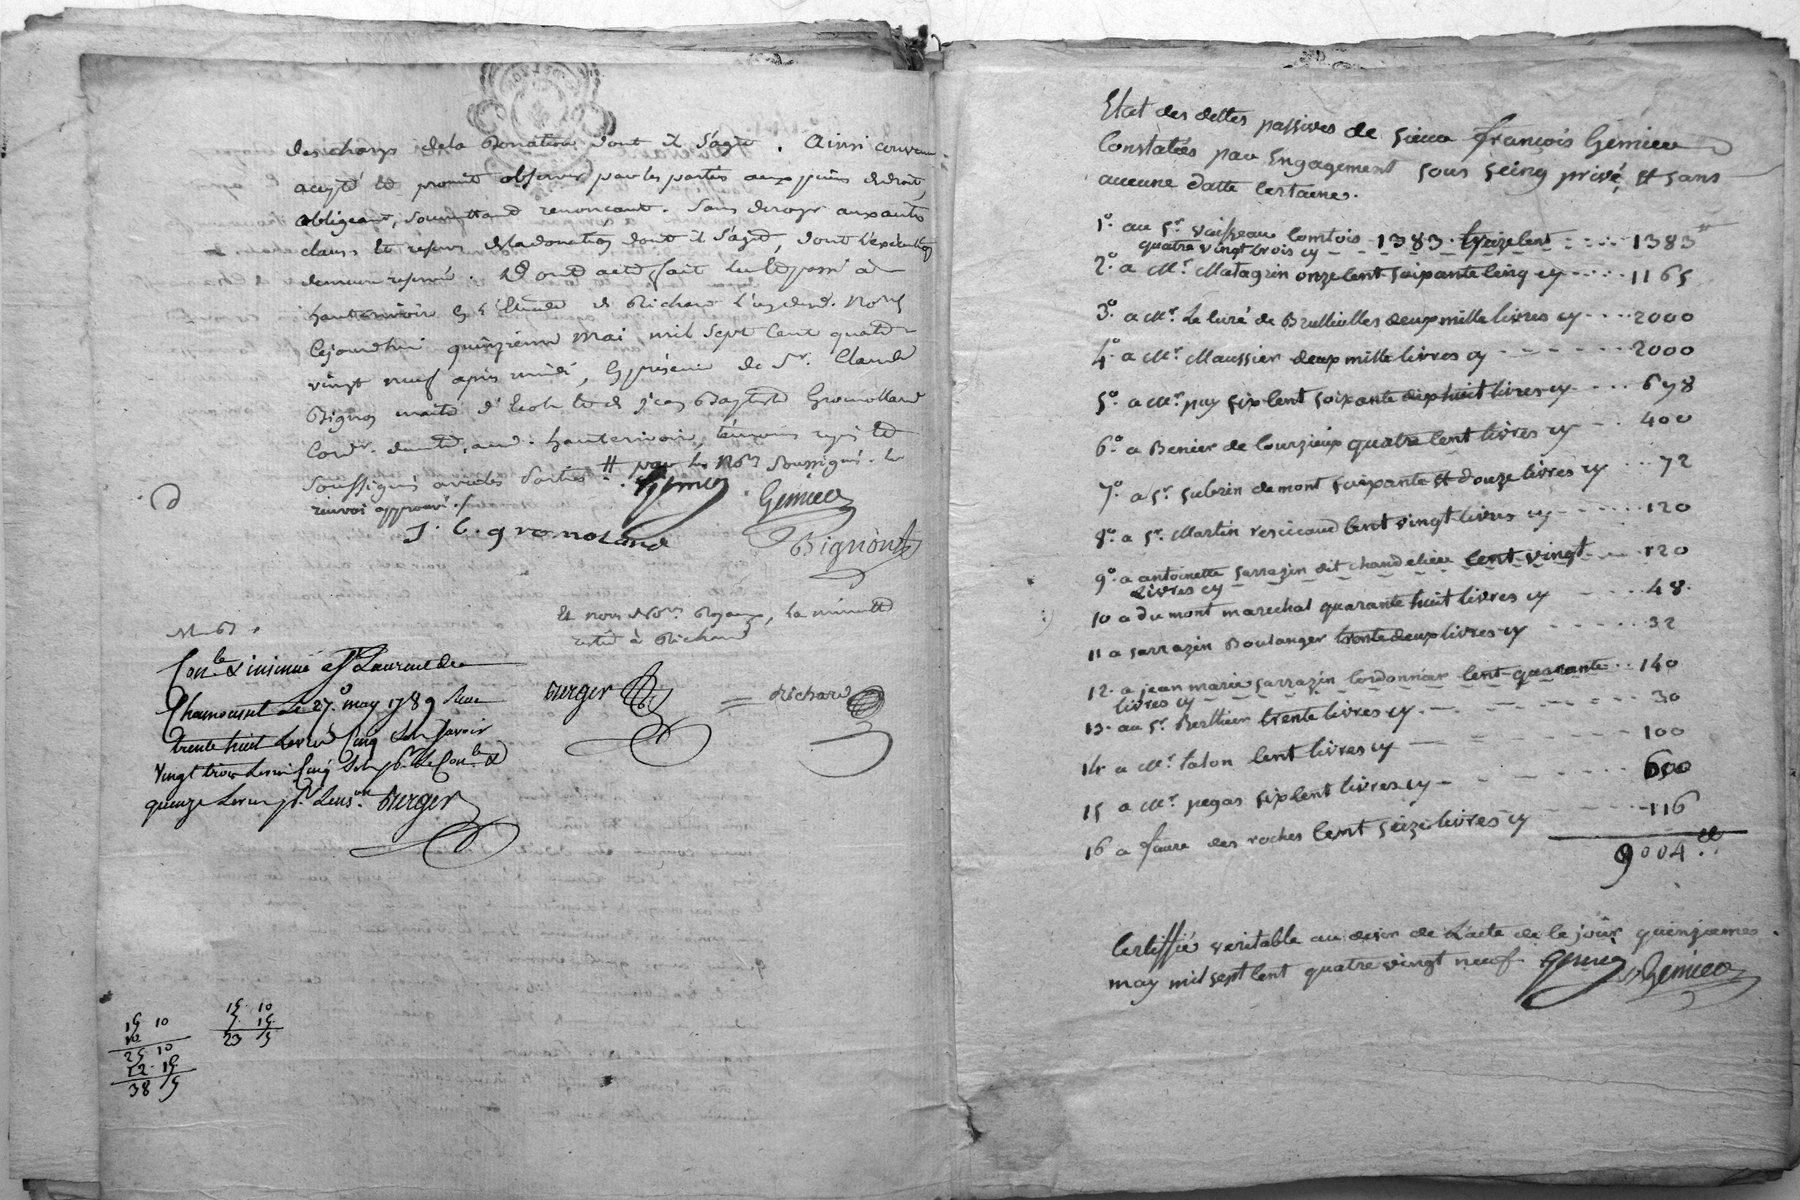 des charges de la Donation dont il s'agit. Ainsi convenu
accepté et promit observer par les parties aux peines de droit
obligeant, soumettant renonçant. Sans deroger aux autres
clauses et reserves de la donation dont il s'agit, dont l'execution
demeure reservée. Dont acte fait lu et passé à
hauterivoir en l'Etude de Richard l'un desd. Nores
Cejourdhui quinzieme mai mil sept cent quatre
vingt neuf après midi, en présence de Sr. Claude
Bignon maitre d'Ecole et de Jean Baptiste Gromolland
Cordr. dud. hauterivoir témoins requis et
soussignés avec les parties par les Nores soussignés. le
renvoi approuvé.
Gemieu
J. C. gromoland
Bignon
Et nous Nores Royaux, la minutte
restée à Richard
Conle & insinué a St Laurent de
Chamousset Le 27. may 1789 Recu
trente huit Livres Cinq Sols Savoir
Vingt trois Livres Cinq Sols pr. le Conle &
quinze Livres pr. Linson. Berger
Berger
= Richard
15 10
10
25 10
12 15
38 5
15 10
7 15
23 5
Etat des dettes passives de sieur françois Gemieu
Constatées par Engagement sous seing privé et sans
aucune datte Certaine.
1o. au Sr. Vaisseau Comtois 1383. treize Cent 1383tt
quatre vingt trois cy
2o. a Mr. Matagrin onze Cent soixante Cinq cy 1165
3o. a Mr. Le Curé de Brullieolles deux mille livres cy 2000
4o. a Mr. Maussier deux mille livres cy 2000
5o. a Mr. puy six Cent soixante dix huit livres cy 678
6o a Benier de Courzieux quatre Cent livres cy 400
7o. a Sr. Subrin de mont soixante et douze livres cy 72
8o. a Sr. Martin Cent vingt livres cy 120
9o. a antoinette sarrazin dit chandelieu Cent vingt 120
Livres cy
10 a du mont marechal quarante huit livres cy 48.
11 a sarrazin Boulanger trente deux livres cy 32
12. a jean marie sarrazin Cordonnier Cent quarante 140
livres cy
13. au Sr. Berthier trente livres cy 30
14 a Mr. talon Cent livres cy 100
15 a Mr. pegas six Cent livres cy 600
16 a faure des roches Cent seize livres cy 116
9004.tt
Certiffié veritable au desir de L'acte de Ce jour quinzieme
may mil sept Cent quatre vingt neuf Gemieu